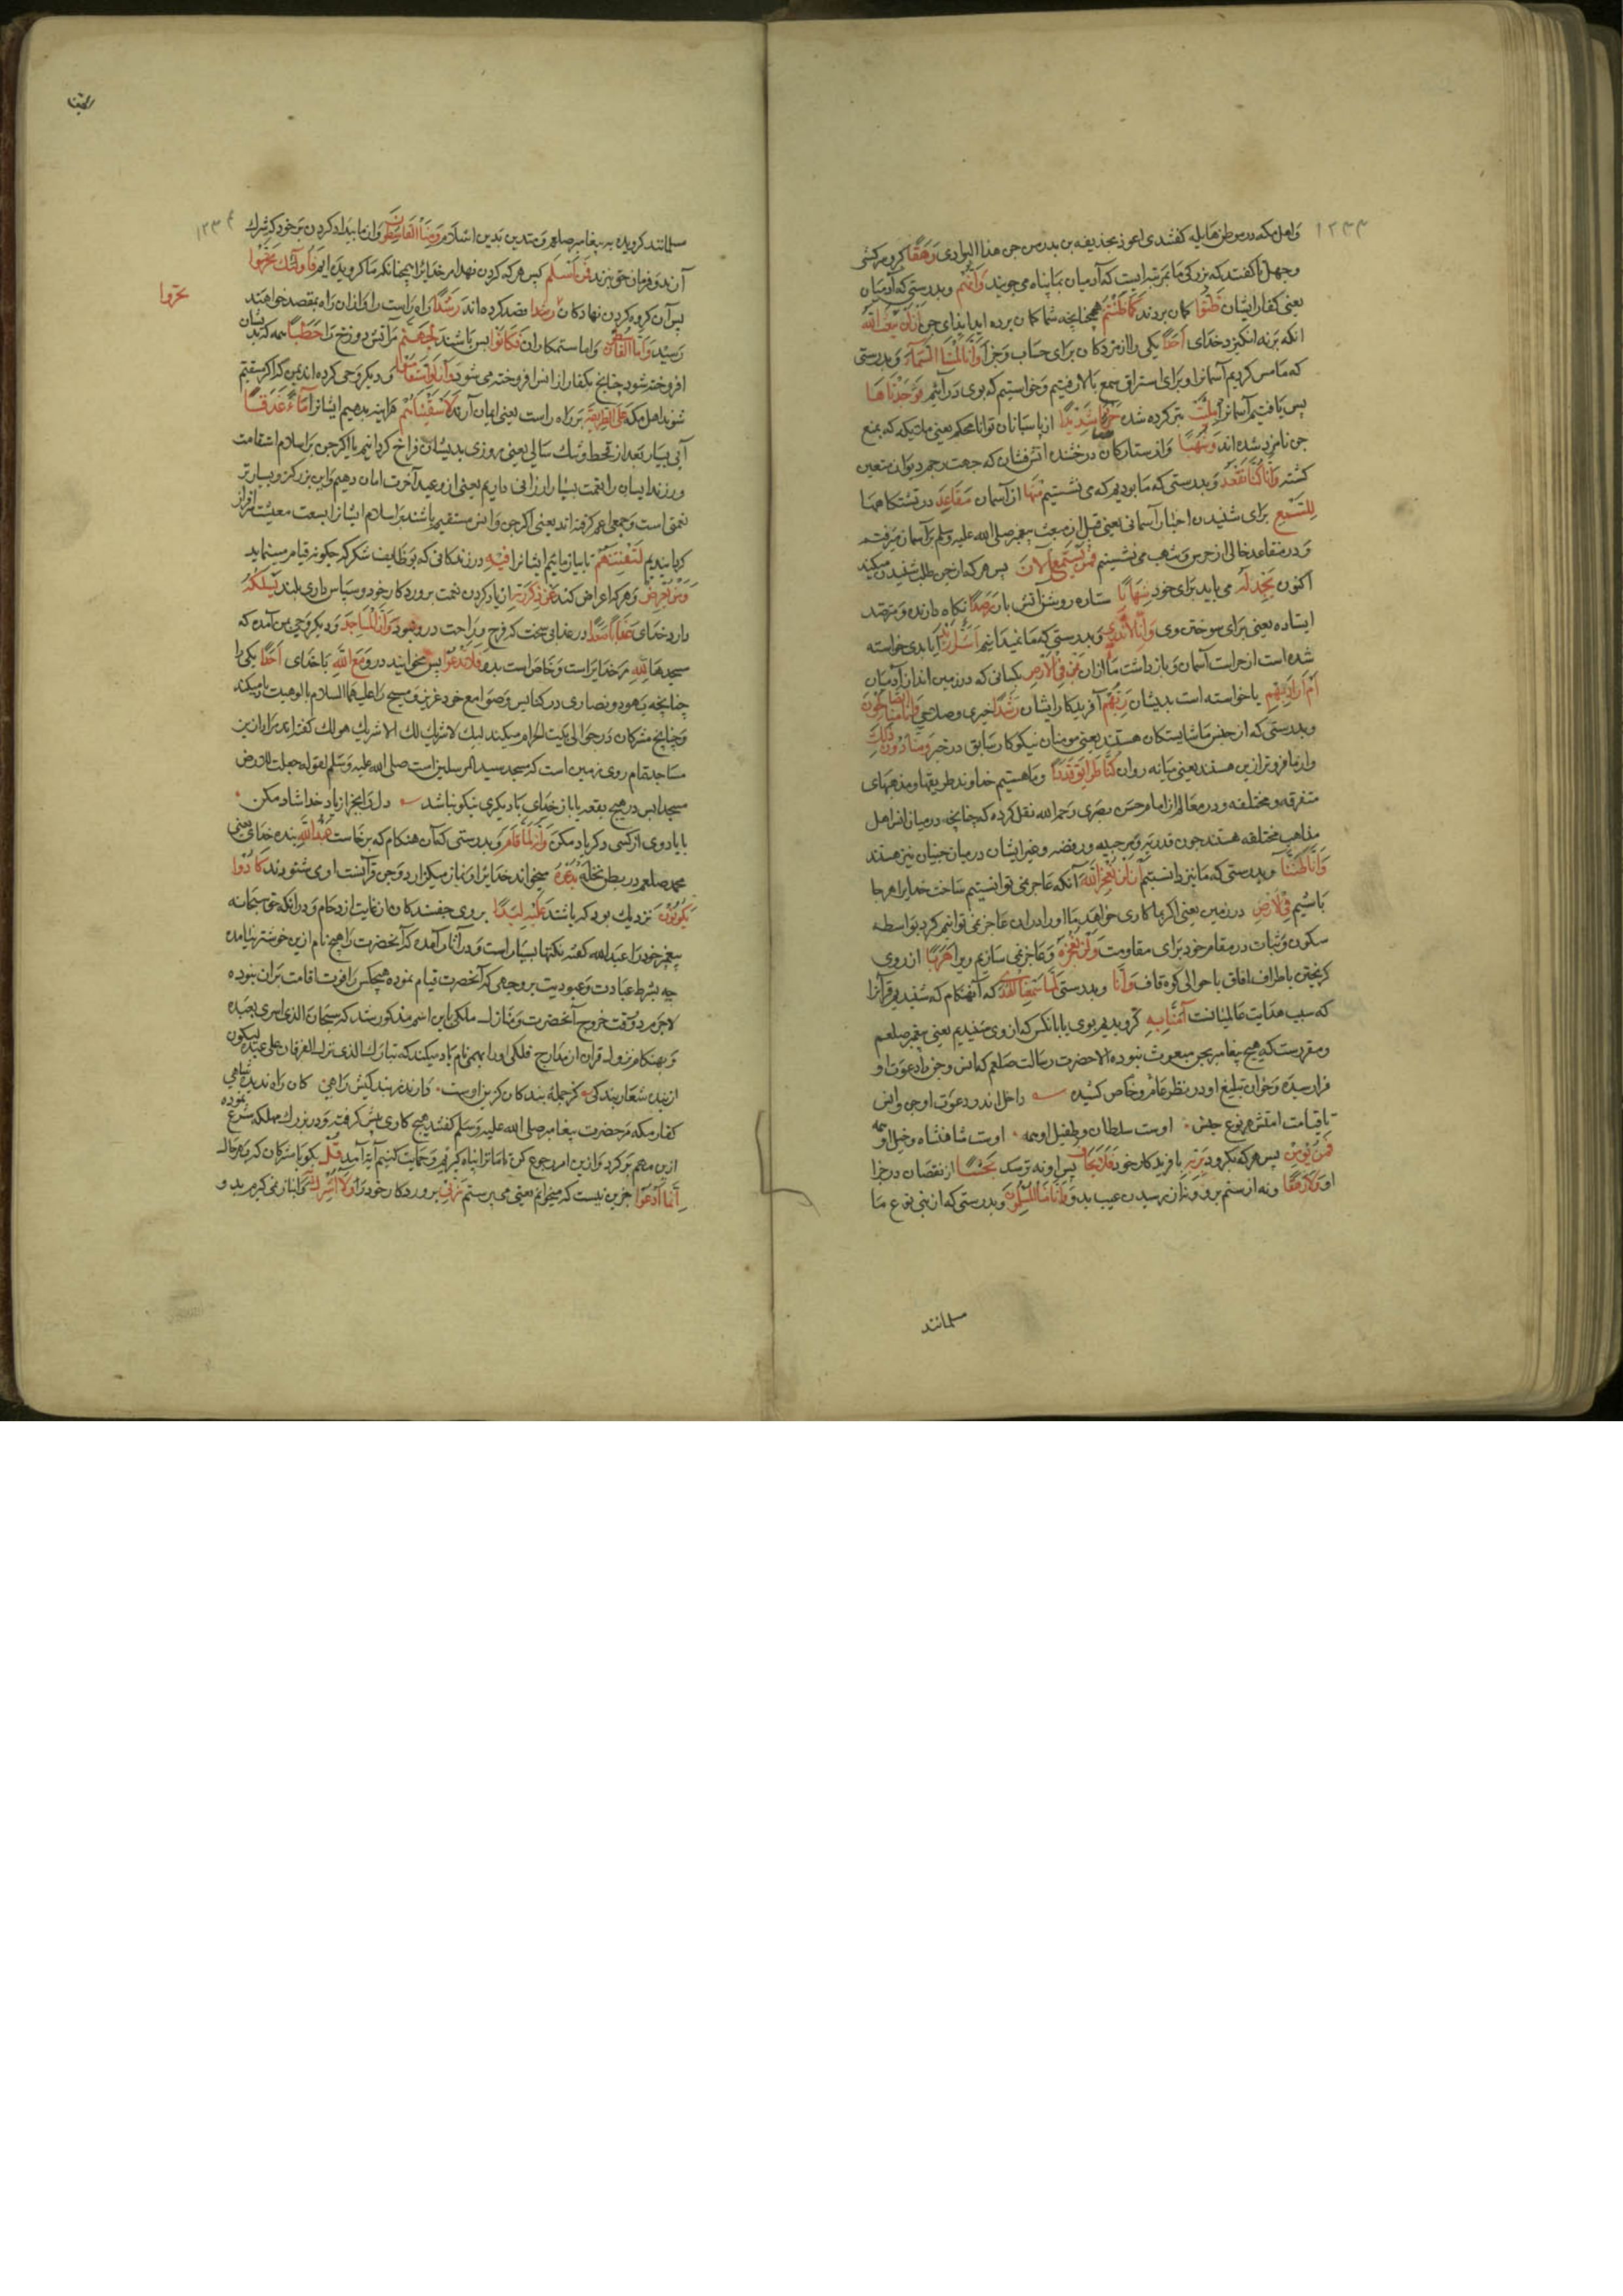 ۱۲۳۳
و اهل مکه در موطن هایله گفتندی اعوذ بحذیفه بن بدر من جن هذا الوادی رَهَقًا کبر و سرکشی
و جهل تا گفتند که بزرگی ما بمرتبه ایست که آدمیان بما پناه می جویند وَاَنَّهُم و بدرستی که آدمیان
یعنی کفار ایشان ظَنُّوا کمان بردند کَمَا ظَنَنْتُم همچنانچه شما کمان برده اید ای جن اَن لَن یَبعَثَ اللّهُ
انکه بر نه انگیزد خدای اَحَدًا یکی را از مردکان برای حساب و جزا وَاَنَّا لَمَسنَا السَّمَاءَ و بدرستی
که ما مس کردیم آسمانرا و برای استراق سمع بالا رفتیم و خواستیم که بوی در آئیم فَوَجَدنَاهَا
پس یافتیم آسمانرا مُلِئَت پر کرده شده حَرَسًا شَدِیدًا از پاسبانان توانا محکم یعنی ملائکه که بمنع
جن نامزد شده اند وَشُهُبًا و از ستارکان درخشنده آتش فشان که جهت رجم دیوان متعین
کشته وَاَنَّا کُنَّا نَقعُدُ و بدرستی که ما بودیم که می نشستیم مِنهَا از آسمان مَقَاعِدَ در نشستکاهها
لِلسَّمعِ برای شنیدن اخبار آسمانی یعنی قبل از مبعث پیغمبر صلی الله علیه وسلم بر آسمان میرفتیم
و در مقاعد خالی از حرس و شهب می نشستیم فَمَن یَستَمِعِ الآنَ پس هر که از جن طلب شنیدن میکند
اکنون یَجِد لَهُ می یابد برای خود شِهَابًا ستاره روشن آتش بان رَصَدًا نکاه دارنده و مترصد
ایستاده یعنی برای سوختن وی وَاَنَّا لَا نَدرِی و بدرستی که ما نمیدانیم اَشَرٌّ اُرِیدَ آیا بدی خواسته
شده است از حراست آسمان و بازداشت ما ازان بِمَن فِی الاَرضِ بکسانی که در زمین اند از آدمیان
اَم اَرَادَ بِهِم یا خواسته است بدیشان رَبُّهُم آفریدکار ایشان رَشَدًا خیری و صلاحی وَاَنَّا مِنَّا الصَّالِحُونَ
و بدرستی که از جنس ما شایستکان هستند یعنی مومنان نیکوکار سابق در خیر وَمِنَّا دُونَ ذَلِکَ
و از ما فروتر ازین هستند یعنی میانه روان کُنَّا طَرَائِقَ قِدَدًا و ما هستیم خداوند طریقها و مذهبهای
متفرقه و مختلفه و در معالم از امام حسن بصری رحمه الله نقل کرده که چنانچه در میان انس اهل
مذاهب مختلفه هستند چون قدریه و مرجیه و رفضه و غیر ایشان در میان جنیان نیز هستند
وَاَنَّا ظَنَنَّا و بدرستی که ما نیز دانستیم اَن لَن نُعجِزَ اللّهَ آنکه عاجز نمی توانستیم ساخت خدایرا هر جا
باشیم فِی الاَرضِ در زمین یعنی اکر بما کاری خواهد ما او را دران عاجز نمی توانیم کرد بواسطه
سکون و ثبات در مقام خود برای مقاومت وَلَن نُعجِزَهُ و عاجز نمی سازیم ویرا هَرَبًا از روی
کریختن باطراف آفاق یا حوالی کوه قاف وَاَنَّا و بدرستی لَمَّا سَمِعنَا الهُدَی که آنهنکام که شنیدیم قرآنرا
که سبب هدایت عالمیانست آمَنَّا بِهِ کرویدیم بوی یا بانکس که از وی شنیدیم یعنی پیغمبر صلعم
و مقررست که هیچ پیغامبر بجن مبعوث نبوده الا حضرت رسالت صلعم که انس و جن را دعوت او
فرا رسیده و خوان تبلیغ او در منظر عام و خاص کشیده داخل اندر دعوت او جن و انس
تا قیامت امتش هر نوع جنس اوست سلطان و طفیل او همه اوست شاهنشاه و خیل او همه
فَمَن یُؤمِن پس هر که بگرود بِرَبِّهِ بآفریدکار خود فَلَا یَخَافُ پس او نه ترسد بَخسًا از نقصان در جزا
او وَلَا رَهَقًا و نه از ستم برو و نه از رسیدن عیب بدو وَاَنَّا مِنَّا المُسلِمُونَ و بدرستی که از بنی نوع ما
مسلمانند
۱۲۳۴
مسلمانند کرویده به پیغامبر صلعم و متدین بدین اسلام وَمِنَّا القَاسِطُونَ و از ما بیداد کردن بر خود که شرک
آرند و فرمان حق نبرند فَمَن اَسلَمَ پس هر که کردن نهد امر خدایرا همچنانکه ما کرویده ایم فَاُولَئِکَ تَحَرَّوا
تحروا
پس آن کروه کردن نهادکان قصد کرده اند رَشَدًا راه راست را و ازان راه بمقصد خواهند
رسید وَاَمَّا القَاسِطُونَ و اما ستمکاران فَکَانُوا پس باشند لِجَهَنَّمَ مر آتش دوزخ را حَطَبًا همه که بدیشان
افروخته شود چنانچ بکفار از انس افروخته می شود وَاَن لَوِ استَقَامُوا و دیکر وحی کرده اند بمن که اکر مستقیم
شوند اهل مکه عَلَی الطَّرِیقَةِ بر راه راست یعنی ایمان آرند لَاَسقَینَاهُم هر آینه بدهیم ایشانرا مَاءً غَدَقًا
آبی بسیار بعد از قحط و تنک سالی یعنی روزی بدیشان فراخ کردانیم یا اکر جن بر اسلام استقامت
ورزند ایشان را نعمت بسیار ارزانی داریم یعنی از وعید آخرت امان دهیم و این بزرکتر و بسیارتر
نعمتی است و جمعی اعم کرفته اند یعنی اکر جن و انس مستقیم باشند بر اسلام ایشانرا بسعت معیشت سرافراز
کردانیدیم لِنَفتِنَهُم تا بیازمائیم ایشانرا فِیهِ در زندکانی که بوظایف شکر که چکونه قیام مینماید
وَمَن یُعرِض و هر که اعراض کند عَن ذِکرِ رَبِّهِ از یاد کردن نعمت پروردکار خود و سپاس داری بلند یَسلُکهُ
دارد خدای عَذَابًا صَعَدًا در عذابی سخت که فرح و راحت درو نبود وَاَنَّ المَسَاجِدَ و دیکر وحی بمن آمده که
مسجدها لِلّهِ مر خدایراست و خاص است بدو فَلَا تَدعُوا پس مخوانید درو مَعَ اللّهِ با خدای اَحَدًا یکی را
چنانچه یهود و نصاری در کنایس و صوامع خود عزیر و مسیح را علیهما السلام بالوهیت یاد میکنند
و چنانچ مشرکان در حوالی بیت الحرام میکنند لبیک لا شریک لک الا شریک هو لک گفته اند مراد ازین
مساجد تمام روی زمین است که مسجد سید المرسلین است صلی الله علیه وسلم لقوله جعلت لی الارض
مسجدا پس در هیچ بقعه یا باز خدای یاد دیکری نیکو نباشد دل را بجز از یاد خدا شاد مکن
با یاد وی از کسی دکر یاد مکن وَاَنَّهُ لَمَّا قَامَ و بدرستی که آن هنکام که برخاست عَبدُ اللّهِ بنده خدای یعنی
محمد صلعم در بطن نخله یَدعُوهُ میخواند خدایرا و نماز میکزارد و جن قرآنست او می شنودند کَادُوا
یَکُونُونَ نزدیک بود که باشند عَلَیهِ لِبَدًا بر وی چفسندکان از غایت ازدحام و درانکه حق سبحانه
پیغمبر خود را عبدالله گفته نکتها بسیار است و در آثار آمده که آنحضرت را هیچ نام ازین خوشتر نیامده
چه بشرط عبادت و عبودیت بر وجهی که آنحضرت قیام نموده هیچکس را قوت اقامت بران نبوده
لاجرم در وقت عروج آنحضرت و منازل ملکی باین اسم مذکور شد که سبحان الذی اسری بعبده
و بهنکام نزول قران از مدارج فلکی او را بهمین نام یاد میکند که تبارک الذی نزل الفرقان علی عبده لیکون
کفار مکه مر حضرت پیغامبر صلی الله علیه وسلم گفتند هیچ کاری پیش کرفته و در بزرک مهلکه شرع نموده
ازین مهم برکرد و ازین امر رجوع کن تا ما ترا پناه کیریم و حمایت کنیم آیه آمد قُل بکو با مشرکان که بهر حال
اِنَّمَا اَدعُوا جزین نیست که میخوانم یعنی می پرستم رَبِّی پروردکار خود را وَلَا اُشرِکُ و انباز نمی کیرم بدو